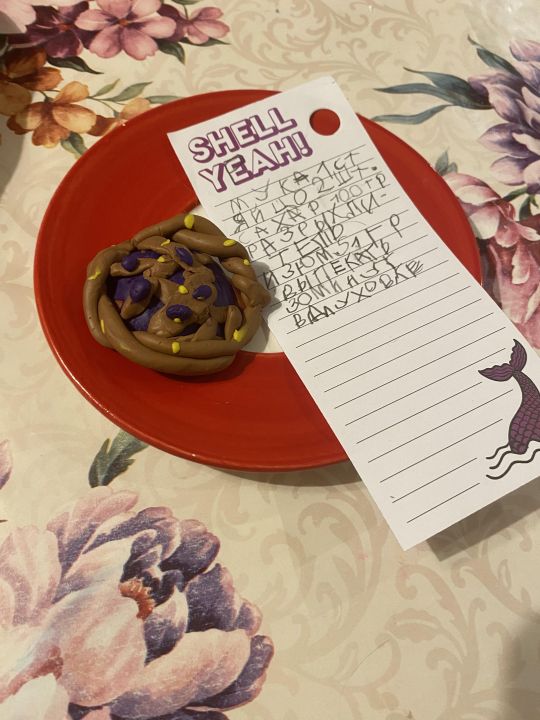 SHELL
YEAH!
МУКА 1 СТ
ЯЙЦО 2 ШТ.
САХАР 100 ГР
РАЗРЫХЛИ-
ТЕЛЬ
ИЗЮМ. 51 ГР
ВЫПЕКАТЬ
30 МИН. ЗЕ
В ДУХОВКЕ